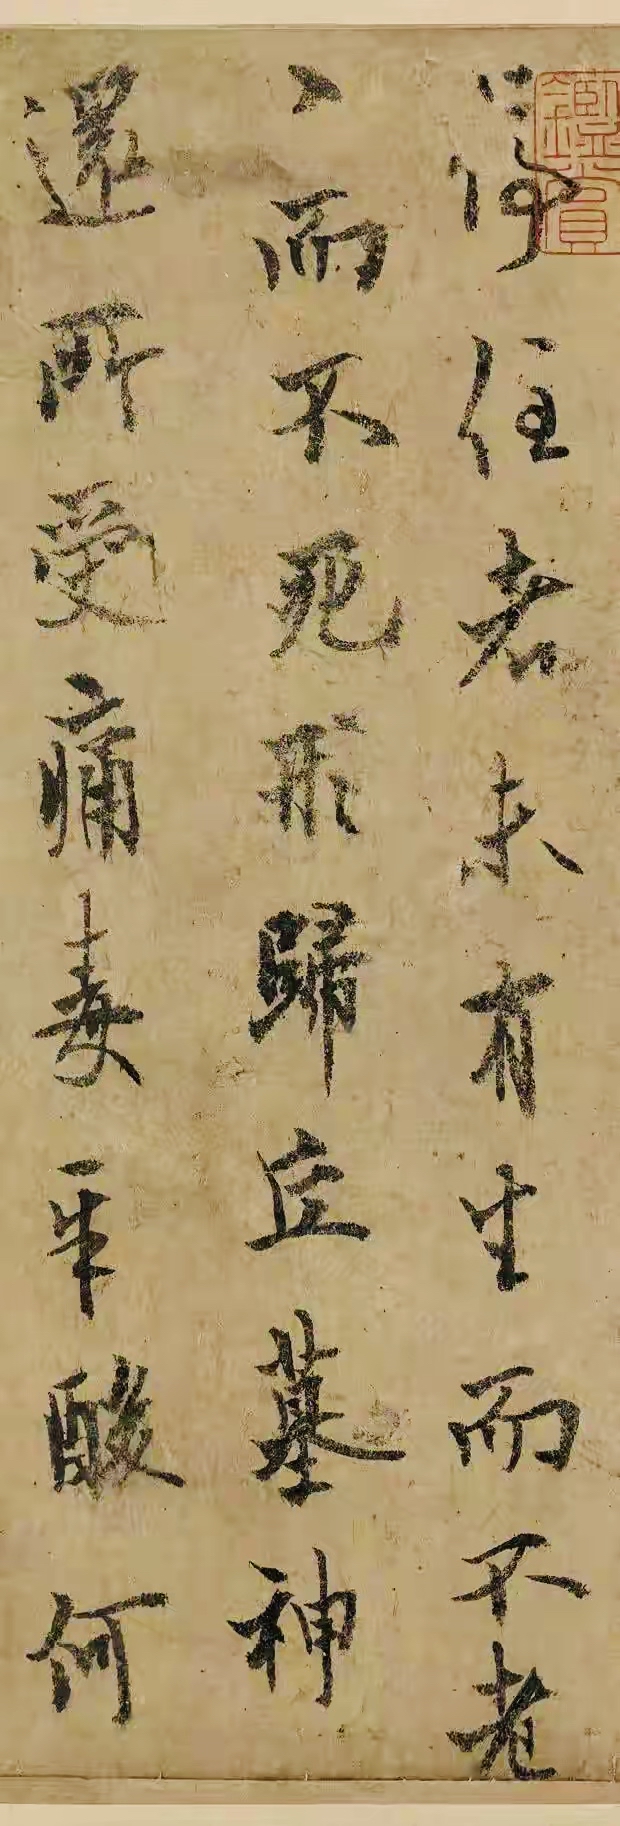 住者未有生而不老
〻而不死形歸丘墓神
還所受痛毒辛酸何